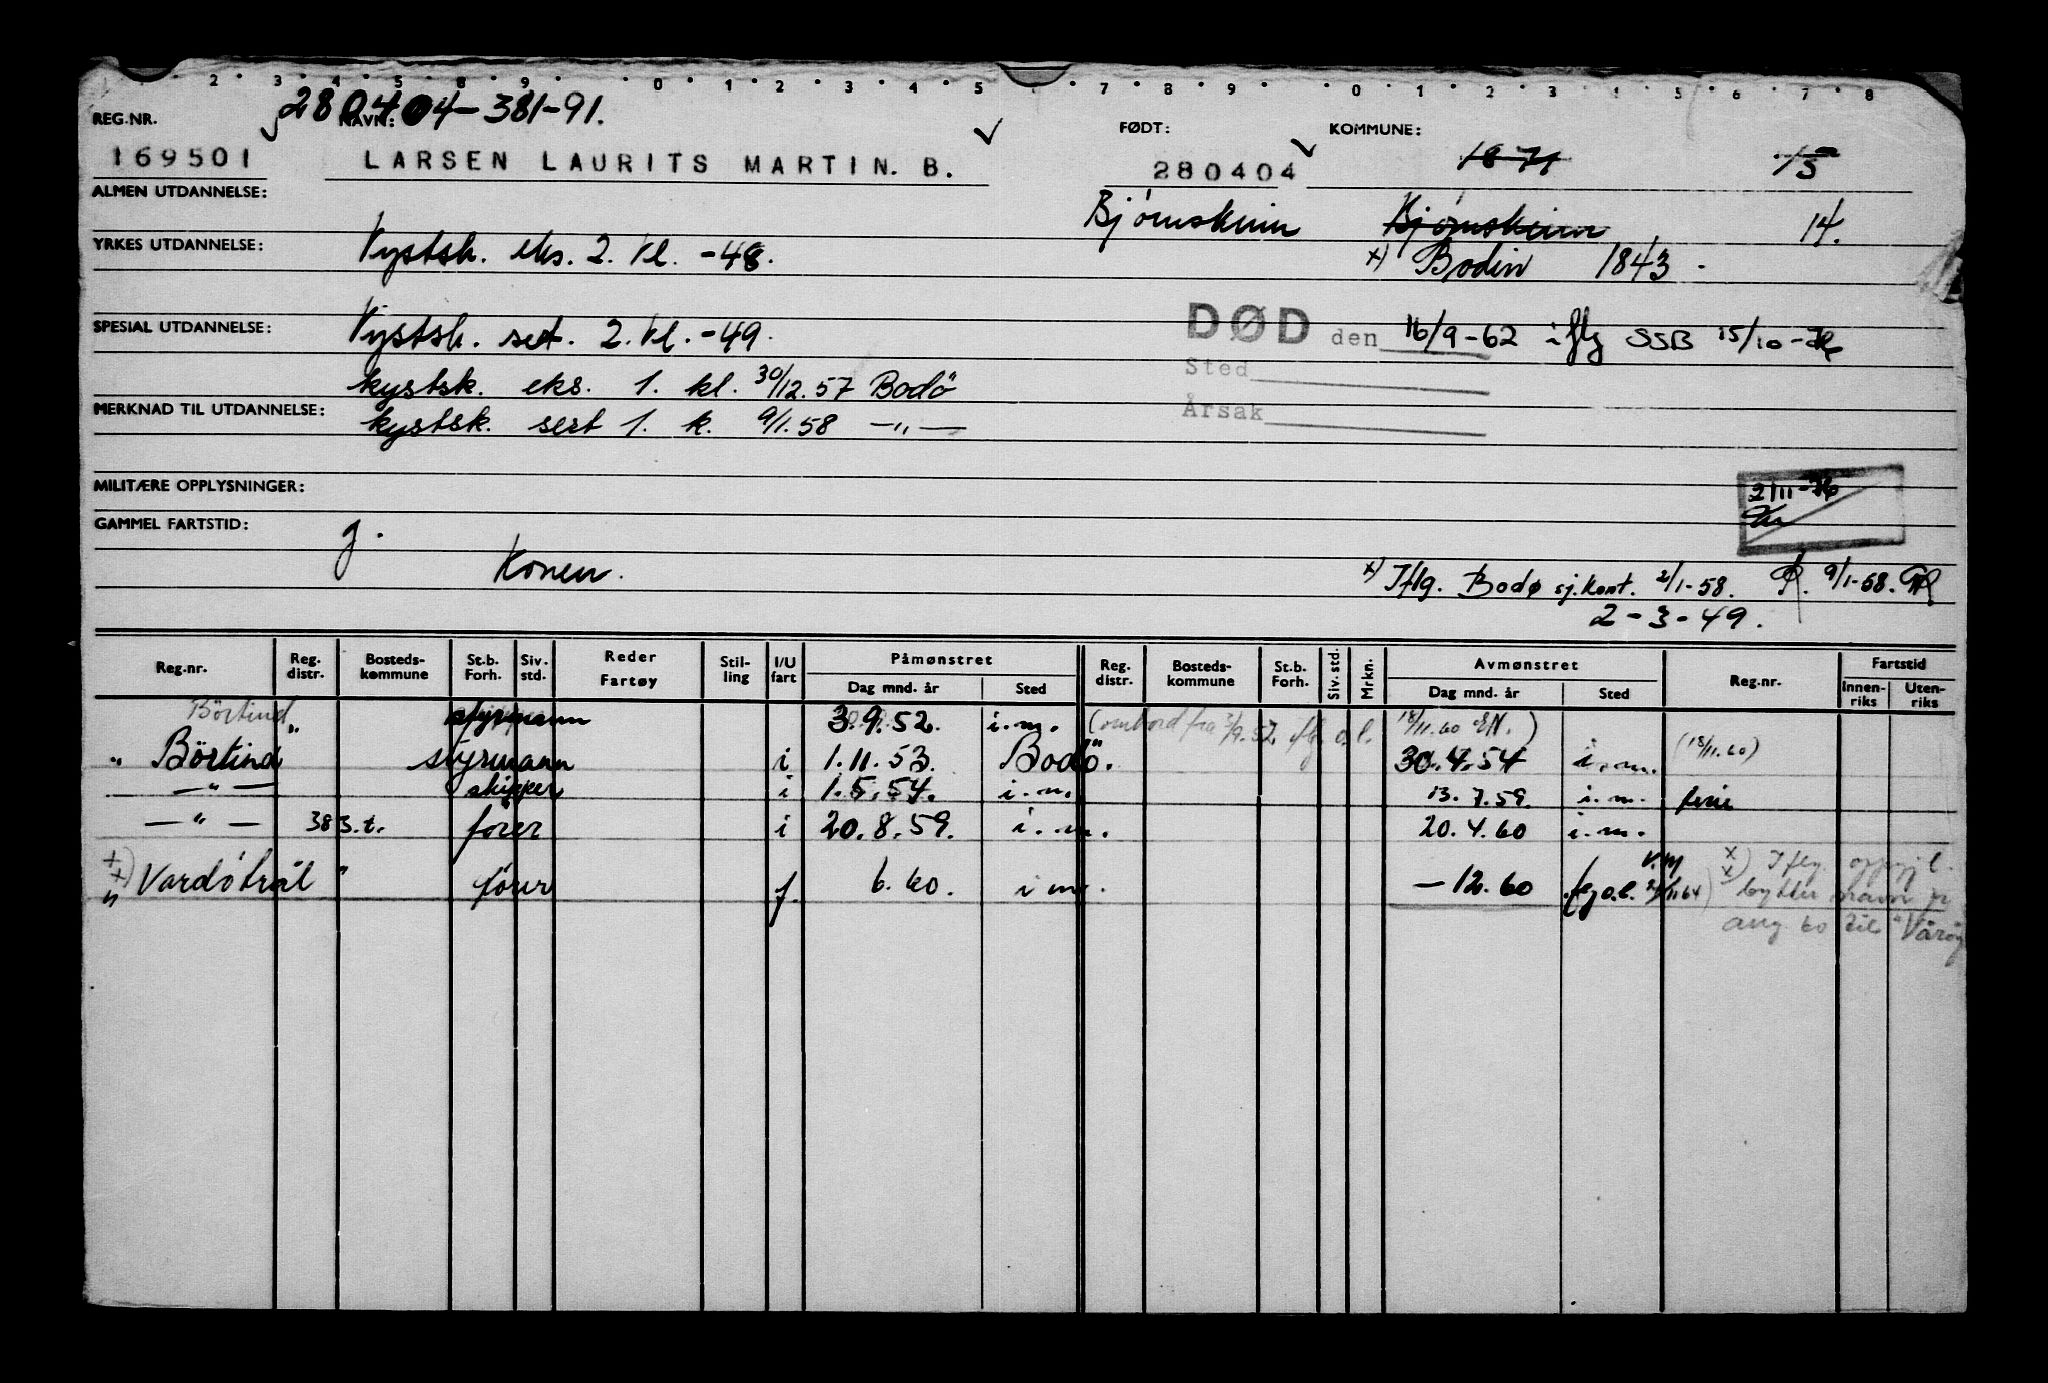 1 2 3 4 5 8 9 0 1 2 3 4 5 7 8 9 0 1 2 3 4 5 6 7 8
280404-381-91.
REG.NR. NAVN: FØDT: KOMMUNE:
169501 LARSEN LAURITS MARTIN. B. 280404 1871 15
ALMEN UTDANNELSE: Bjørnskinn Bjørnskinn 14.
YRKES UTDANNELSE: Kystsk. eks. 2. kl. -48. x) Bodin 1843.
SPESIAL UTDANNELSE: Kystsk. sert. 2. kl. -49. DØD den 16/9-62 iflg SSB 15/10-76
kystsk. eks. 1. kl. 30/12.57 Bodö Sted
MERKNAD TIL UTDANNELSE: kystsk. sert 1. k. 9/1.58 —"— Årsak
MILITÆRE OPPLYSNINGER: 2/11-76
GAMMEL FARTSTID: g.
Konen.
x) Iflg. Bodø sj.kont. 2/1-58. 9/1-58.
2-3-49.
Reg.nr. Reg. distr. Bosteds-kommune St.b. Forh. Siv. std. Reder Fartøy Stil-ling I/U fart Påmønstret Dag mnd. år Sted Reg. distr. Bosteds-kommune St.b. Forh. Siv. std. Mrkn. Avmønstret Dag mnd. år Sted Reg.nr. Fartstid Innen-riks Uten-riks
Börtind " styrmann 3.9.52. i.m. (ombord fra 3/9.52 iflg. o.l. 18/11.60 EN.)
" Börtind styrmann i 1.11.53. Bodö. 30.4.54 i.m. (18/11.60)
—"— skipper i 1.5.54. i.m. 13.7.59. i.m. ferie
—"— 383.t. fører i 20.8.59. i.m. 20.4.60 i.m.
x) x) " Vardøtrål " fører f. 6.60. i m. —12.60 x) x) Iflg. oppgj l.
bytter navn pr
aug 60 til "Vårøy